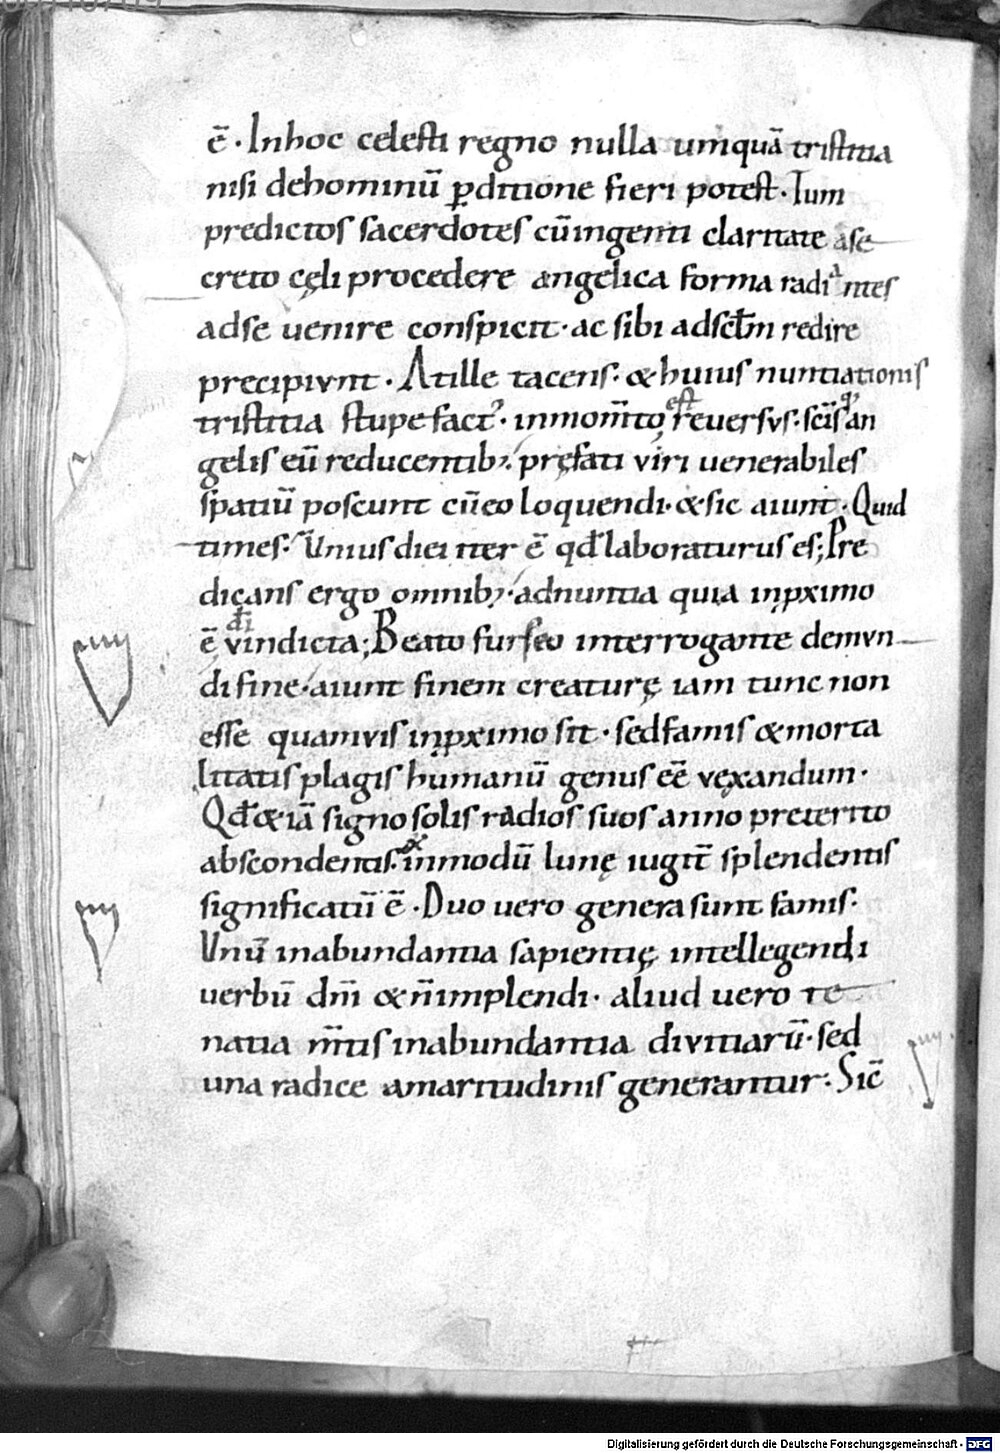 ē. In hoc celesti regno nulla umquā tristitia
nisi de hominū ꝑditione fieri potest. Tum
predictos sacerdotes cū ingenti claritate a se
creto cęli procedere angelica forma radiantes
ad se uenire conspicit. ac sibi ad sc̄lm redire
precipiunt. At ille tacens. & huius nuntiationis
tristitia stupefact᾽. in mom̄to est reuersus. sc̄is q; an
gelis eū reducentib; pręfati viri uenerabiles
spatiū poscunt cū eo loquendi. & sic aiunt. Quid
times? Unius diei iter ē qd̄ laboraturus es; Pre
dicans ergo omnib; adnuntia quia in ꝓximo
ē di̅ vindicta; Beato furseo interrogante de mun
di fine. aiunt finem creaturę iam tunc non
esse quamvis in ꝓximo sit. sed famis & morta
litatis plagis humanū genus eē vexandum.
Qd̄ & iā signo solis radios suos anno preterito
abscondentis. & in modū lunę iugit̄ splendentis
significatū ē. Duo uero genera sunt famis.
Unū in abundantia sapientię intellegendi
uerbū dn̄i & n̄ implendi. aliud uero te
natia m̄tis in abundantia divitiarū. sed
una radice amaritudinis generantur. Sic̄